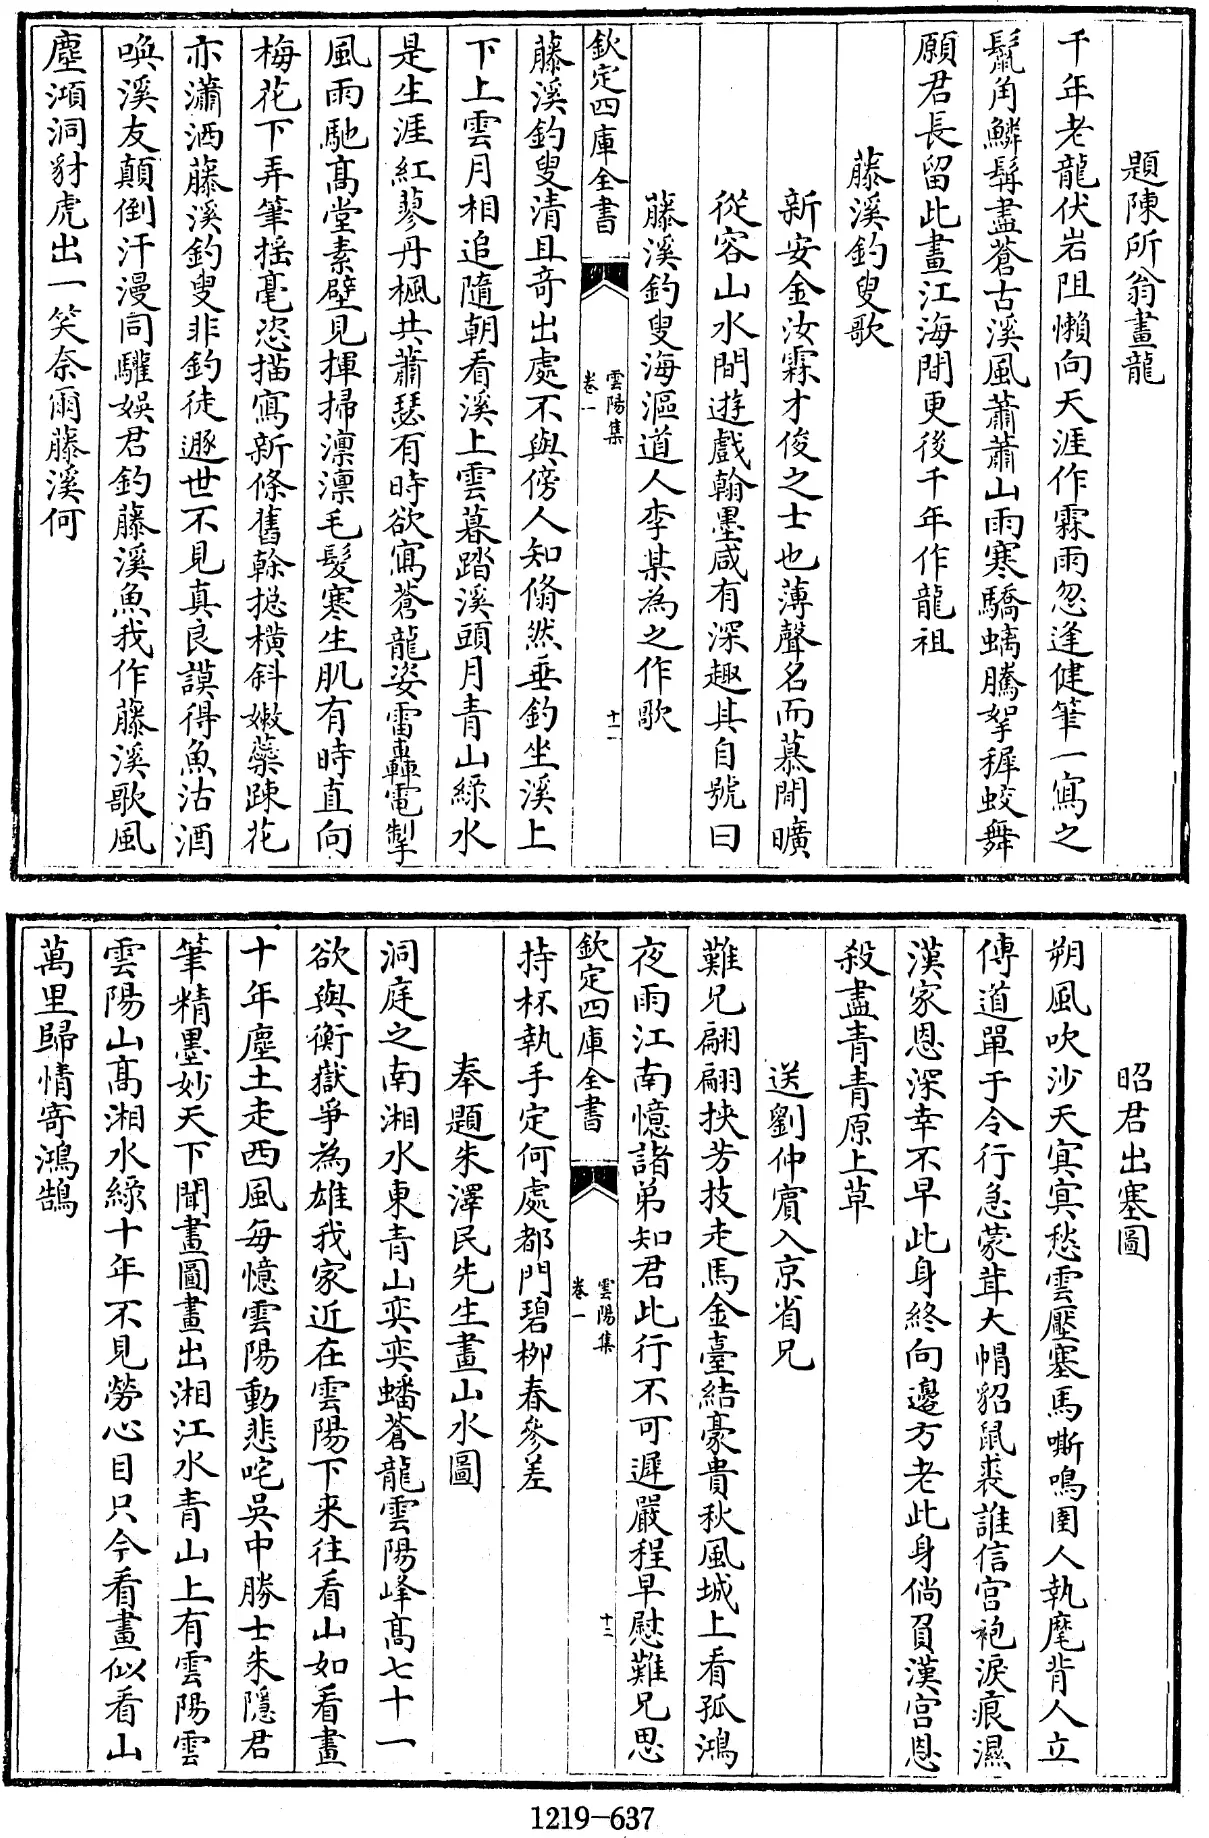 題陳所翁畫龍
千年老龍伏岩阻懶向天涯作霖雨忽逢健筆一寫之
鬣角鱗髯盡蒼古溪風蕭蕭山雨寒驕螭騰拏穉蛟舞
願君長留此畫江海間更後千年作龍祖
藤溪釣叟歌
新安金汝霖才俊之士也薄聲名而慕閒曠
從容山水間遊戲翰墨咸有深趣其自號曰
藤溪釣叟海漚道人李某為之作歌
欽定四庫全書
雲陽集
卷一
十一
藤溪釣叟清且奇出處不與傍人知翛然垂釣坐溪上
下上雲月相追隨朝看溪上雲暮踏溪頭月青山綠水
是生涯紅蓼丹楓共蕭瑟有時欲寫蒼龍姿雷轟電掣
風雨馳高堂素壁見揮掃凛凛毛髮寒生肌有時直向
梅花下弄筆揺毫恣描寫新條舊榦揔橫斜嫩蘂踈花
亦瀟洒藤溪釣叟非釣徒遯世不見真良謨得魚沽酒
喚溪友顛倒汗漫同驩娛君釣藤溪魚我作藤溪歌風
塵澒洞豺虎出一笑奈爾藤溪何
昭君出塞圖
朔風吹沙天㝠㝠愁雲壓塞馬嘶鳴圉人執麾背人立
傳道單于令行急蒙茸大㡌貂鼠裘誰信宮袍淚痕濕
漢家恩深幸不早此身終向邊方老此身倘負漢宮恩
殺盡青青原上草
送劉仲賓入京省兄
難兄翩翩挾芳技走馬金臺結豪貴秋風城上看孤鴻
夜雨江南憶諸弟知君此行不可遲嚴程早慰難兄思
欽定四庫全書
雲陽集
卷一
十二
持杯執手定何處都門碧栁春參差
奉題朱澤民先生畫山水圖
洞庭之南湘水東青山奕奕蟠蒼龍雲陽峰高七十一
欲與衡嶽爭為雄我家近在雲陽下来往看山如看畫
十年塵土走西風每憶雲陽動悲咤吳中勝士朱隱君
筆精墨妙天下聞畫圖畫出湘江水青山上有雲陽雲
雲陽山高湘水綠十年不見勞心目只今看畫似看山
萬里歸情寄鴻鵠
1219-637